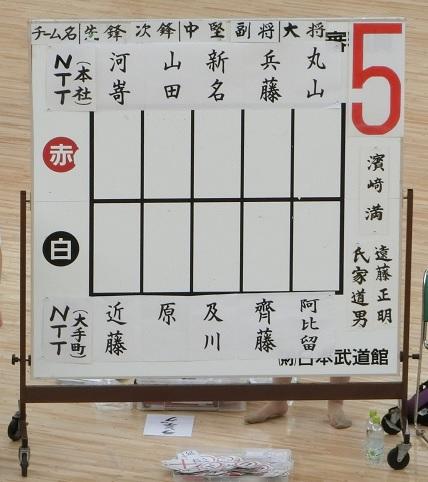 チーム名 先鋒 次鋒 中堅 副将 大将
5
NTT(本社) 河嵜 山田 新名 兵藤 丸山
赤
白
NTT(大手町) 近藤 原 及川 齊藤 阿比留
濱﨑満
遠藤正明
氏家道男
日本武道館